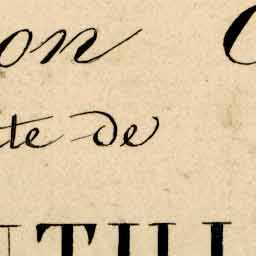 on C
te de
TILL